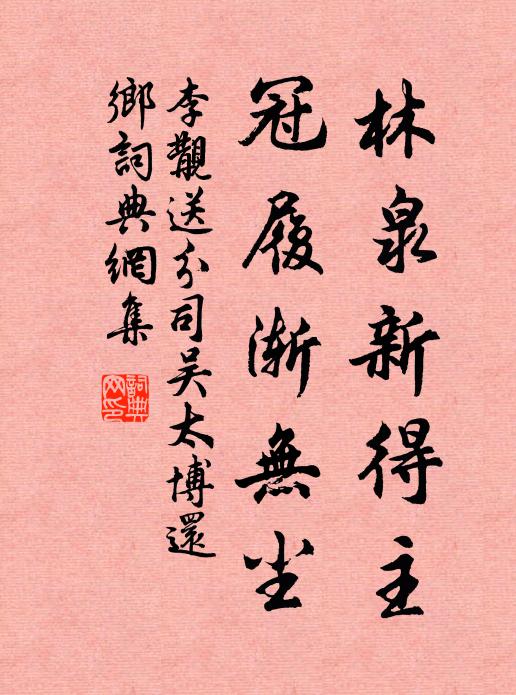 林泉新得主
冠履漸無尘
李觀送分司吴太博還
鄉詞典網集
詞典网印